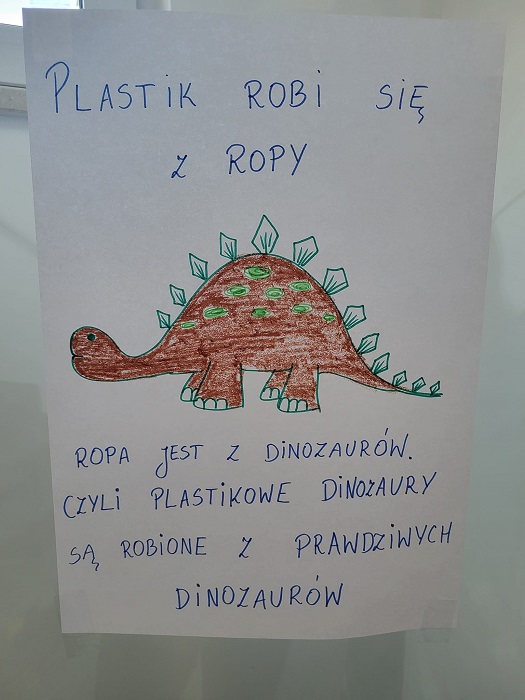 PLASTIK ROBI SIĘ
Z ROPY
ROPA JEST Z DINOZAURÓW.
CZYLI PLASTIKOWE DINOZAURY
SĄ ROBIONE Z PRAWDZIWYCH
DINOZAURÓW